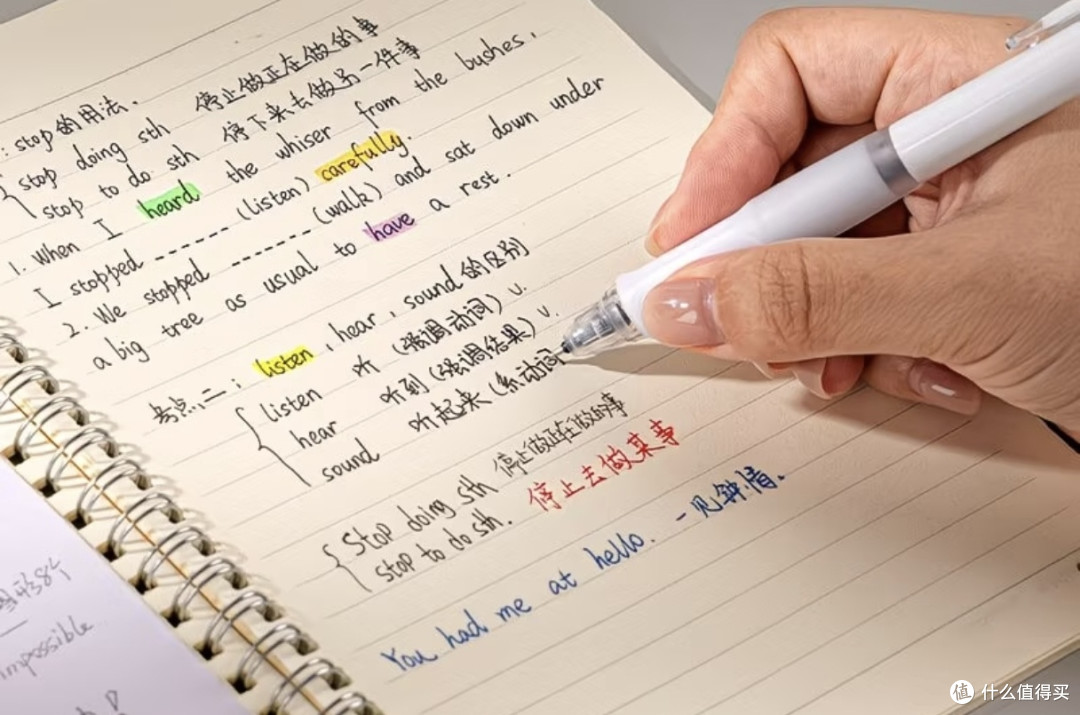 ：stop的用法.
stop doing sth 停止做正在做的事
stop to do sth 停下来去做另一件事
1. When I heard the whiser from the bushes,
I stopped ------ (listen) carefully.
2. We stopped ------ (walk) and sat down under
a big tree as usual to have a rest.
考点二：listen, hear, sound的区别
listen 听 (强调动词) v.
hear 听到 (强调结果) v.
sound 听起来 (系动词
Stop doing sth 停止做正在做的事
stop to do sth. 停止去做某事
You had me at hello. 一见钟情.
impossible
值 什么值得买